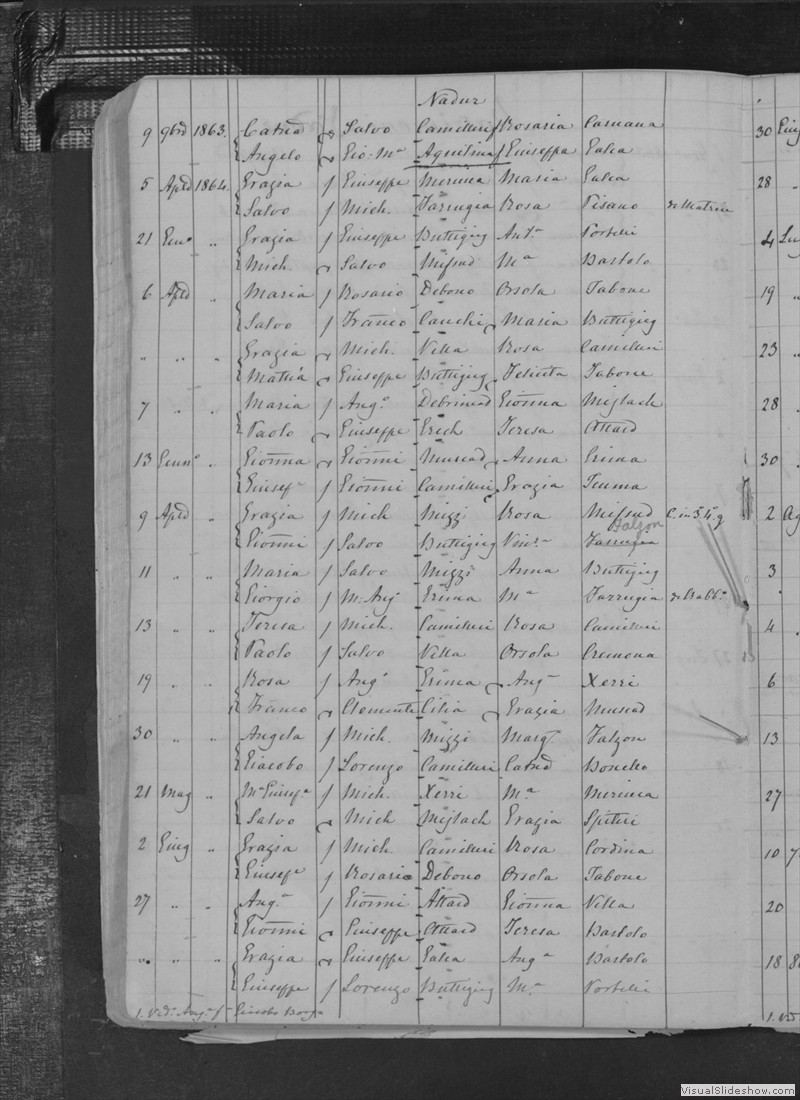 Nadur
9 9bre 1863. Catna Salvo Camilleri Rosaria Camana 30 Giug
Angelo Gio: Ma Aquilina Giuseppa Galea
5 Aple 1864. Grazia Giuseppe Meruica Maria Galea 28 "
Salvo Mich. Farrugia Rosa Pisano
21 Genº " Grazia Giuseppe Buttigieg Anta Portelli 4 Lug
Mich. Salvo Mifsud Ma Bartolo
6 Aple " Maria Rosario Debono Orsola Tabone 19 "
Salvo Franco Cauchi Maria Buttigieg
" " " Grazia Mich. Vella Rosa Camilleri 23 "
Mattia Giuseppe Buttigieg Felicita Tabone
7 " " Maria Angº Debrincad Gionna Mejlach 28 "
Paolo Giuseppe Grech Teresa Attard
13 Gennº " Gionna Gionni Muscad Anna Grima 30 "
Giusepe Gionni Camilleri Grazia Teuma
9 Aple " Grazia Mich Mizzi Rosa Mifsud C. in 3. 4. g 2 Ag
Halzon
Gionni Salvo Buttigieg Vinza Farrugia
11 " " Maria Salvo Mizzi Anna Buttigieg 3
Giorgio M. Ang Grima Ma Farrugia
13 " " Teresa Mich. Camilleri Rosa Camilleri 4
Paolo Salvo Vella Orsola Cremona
19 " " Rosa Angº Grima Anga Xerri 6
Franco Clemente Cilia Grazia Muscad
30 " " Angela Mich. Mizzi Marga Falzon 13
Giacobo Lorenzo Camilleri Catna Bonello
21 Mag " Ma Giusepa Mich. Xerri Ma Meruica 27
Salvo Mich Mejlach Grazia Spiteri
2 Giug " Grazia Mich. Camilleri Rosa Cordina 10
Giusepe Rosario Debono Orsola Tabone
27 " " Anga Gionni Attard Gionna Vella 20
Gionni Giuseppe Attard Teresa Bartolo
" " " Grazia Giuseppe Galea Anga Bartolo 18
Giuseppe Lorenzo Buttigieg Ma Portelli
1. Ved. Anga f. Giacobo Borg 1. Ved
VisualSlideshow.com